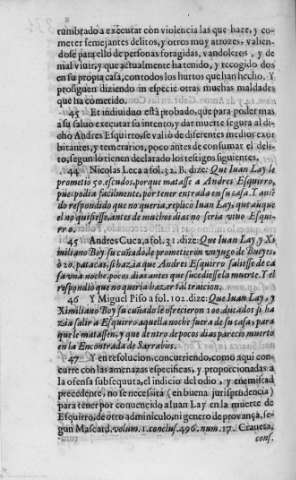 tumbrado a executar con violencia las que haze, y co-
meter semejantes delitos, y otros muy atrozes, valien-
dose para ello de personas foragidas, vandoleros, y de
mal viuir, y que actualmente ha tenido, y recogido dos
en su propia casa, con todos los hurtos que han hecho. Y
prosiguen diziendo in especie otras muchas maldades
que ha cometido.
43 Et indiuiduo està probado, que para poder mas
a su saluo executar su intento, y dar muerte segura al di-
cho Andres Esquirro, se valiò de diferentes medios exor-
bitantes, y temerarios, poco antes de consumar el deli-
to, segun lo tienen declarado los testigos siguientes.
44 Nicolas Leca a fol. 32. B. dize: Que Iuan Lay le
prometiò 50. escudos, porque matasse a Andres Esquirro,
pues podia facilmente, por tener entrada en su casa. Y auiẽ-
do respondido que no queria, replicò Iuan Lay, que aunque
el no quisiesse, antes de muchos dias no seria viuo Esquir-
ro.
45 Andres Cuca, a fol. 31. dize: Que Iuan Lay, y Xi-
miliano Boy su cuñado, le prometieron vn jugo de Bueyes,
ò 20. patacas, si hazia que Andres Esquirro saliesse de ca-
sa vna noche, pocos dias antes que sucediesse la muerte. Y el
respondiò que no queria hazer tal traicion.
46 Y Miguel Piso a fol. 102. dize: Que Iuan Lay, y
Ximiliano Boy su cuñado le ofrecieron 100. ducados si ha-
zia salir a Esquirro aquella noche fuera de su casa, para
que le matassen, y que dentro de pocos dias pareciò muerto
en la Encontrada de Sarrabus.
47 Y en resolucion, concurriendo, como aqui con-
curre con las amenazas especificas, y proporcionadas a
la ofensa subsequuta, el indicio del odio, y enemistad
precedente, no se necessita (en buena jurisprudencia)
para tener por conuencido a Iuan Lay en la muerte de
Esquirro, de otro adminiculo, ni genero de prouança, se-
gun Mascard. volum. 1. conclus. 496. num. 17. Craueta,
cons.